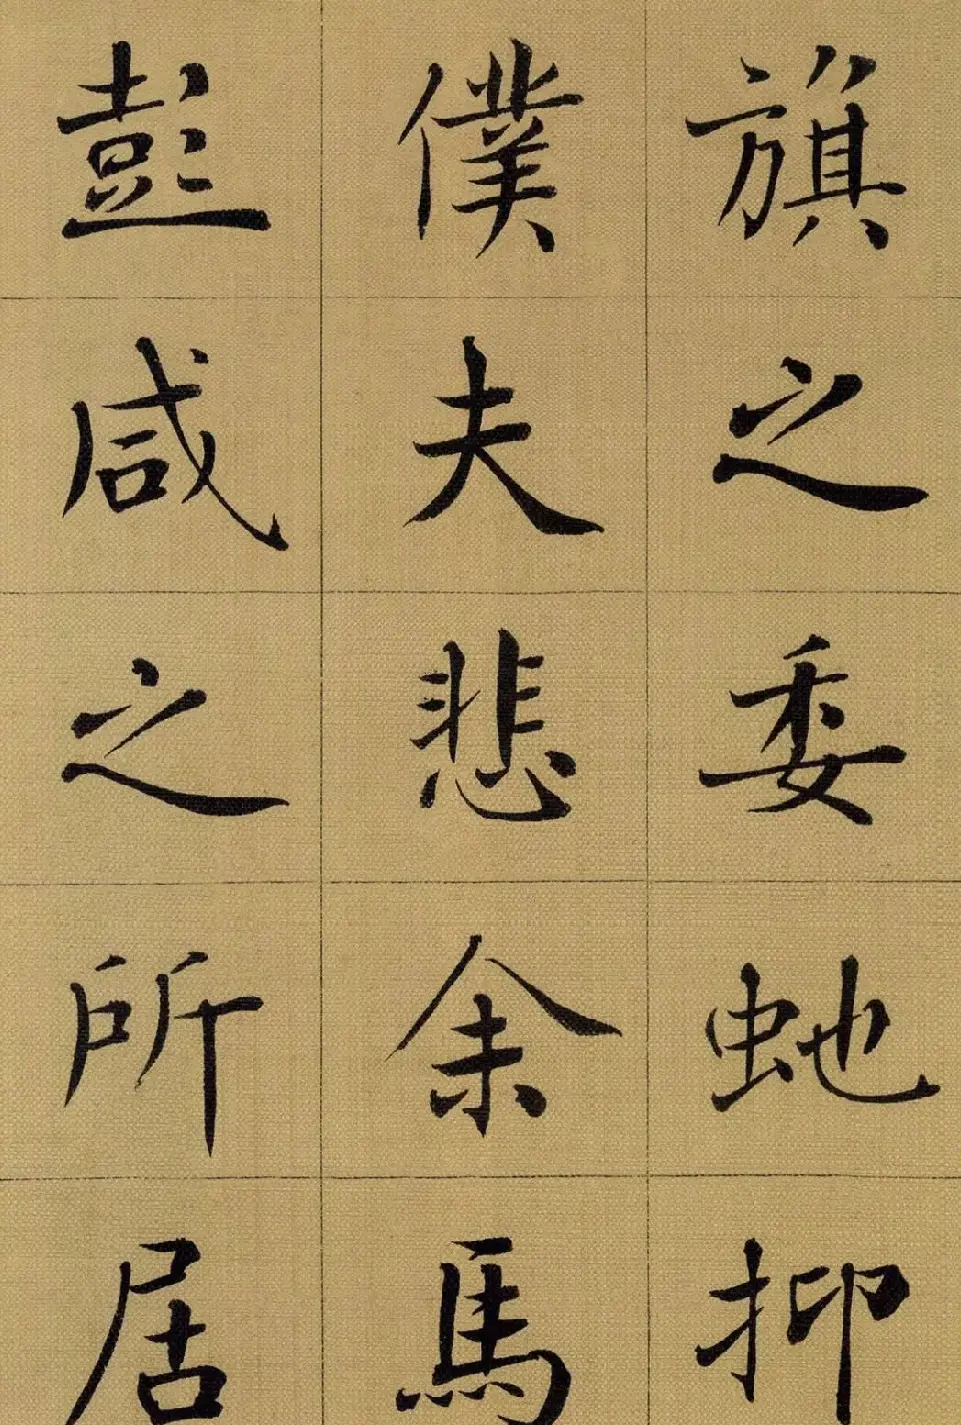 旗之委虵抑
僕夫悲余馬
彭咸之所居